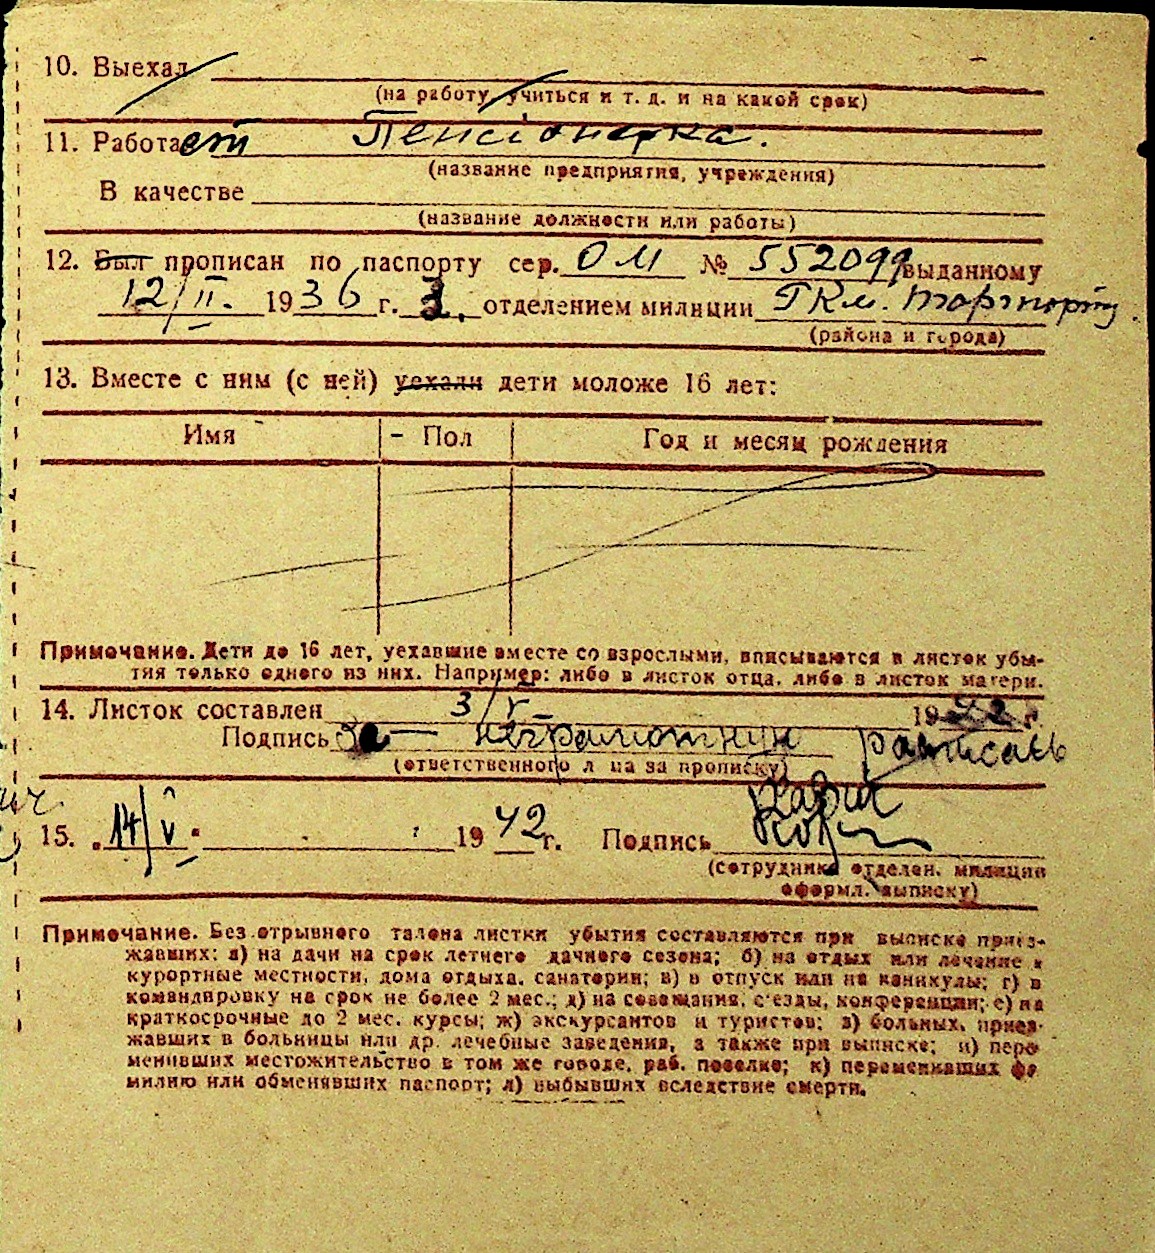 10. Выехал
(на работу, учиться и т. д. и на какой срок)
11. Работает Пенсіонерка.
(название предприятия, учреждения)
В качестве
(название должности или работы)
12. Был прописан по паспорту сер. ОМ № 552099, выданному
12/II. 1936 г. 3. отделением милиции ГКм.
(района и города)
13. Вместе с ним (с ней) уехали дети моложе 16 лет:
Имя Пол Год и месяц рождения
Примечание. Дети до 16 лет, уехавшие вместе со взрослыми, вписываются в листок убы-
тия только одного из них. Например: либо в листок отца, либо в листок матери.
14. Листок составлен 3/V 1942 г.
Подпись За неграмотную
(ответственного лица за прописку)
15. 14/V 1942 г. Подпись
(сотрудника отделен. милиции
оформл. выписку)
Примечание. Без отрывного талона листки убытия составляются при выписке приез-
жавших: а) на дачи на срок летнего дачного сезона; б) на отдых или лечение в
курортные местности, дома отдыха, санатории; в) в отпуск или на каникулы; г) в
командировку на срок не более 2 мес.; д) на совещания, с'езды, конференции; е) на
краткосрочные до 2 мес. курсы; ж) экскурсантов и туристов; з) больных, приез-
жавших в больницы или др. лечебные заведения, а также при выписке; и) пере
менивших местожительство в том же городе, раб. поселке; к) переменивших фа
милию или обменявших паспорт; л) выбывших вследствие смерти.